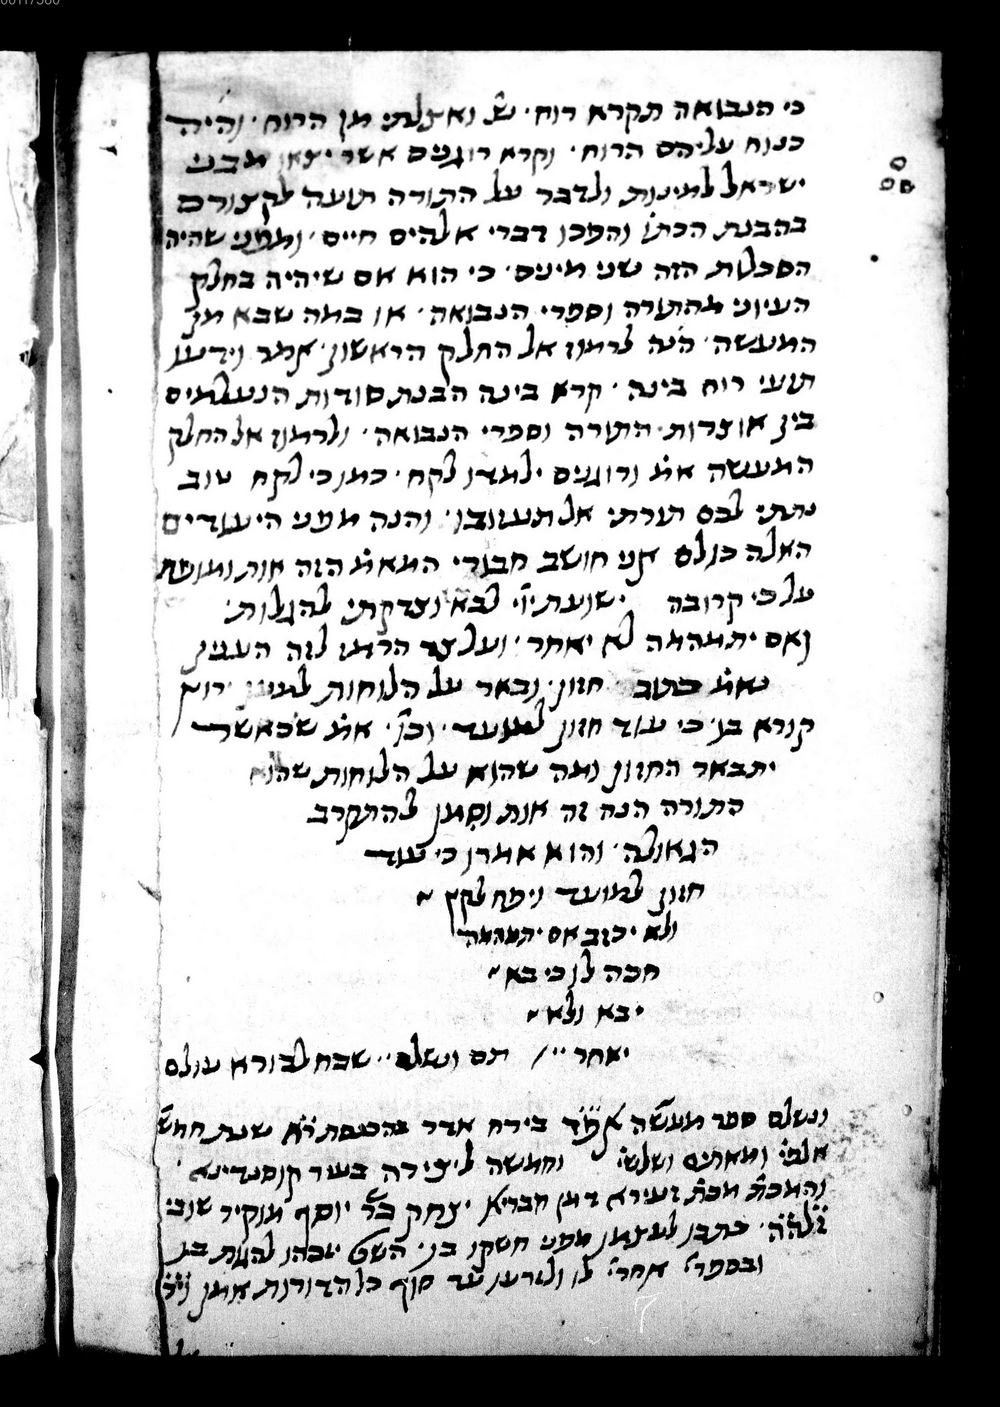 כי הנבואה תקרא רוח׳ ש׳ ואצלתי מן הרוח׳ והיה
כנוח עליהם הרוח׳ וקרא רוגנים אשר יצאו מבני
ישראל למינות ולדבר על התורה תועה לקצורם
בהבנת הכתו׳ והפכו דברי אלהים חיים׳ ומפני שהיה
הסכלות הזה שני מינים׳ כי הוא אם שיהיה בחלק
העיוני מהתורה וספרי הנבואה׳ או במה שבא מן
המעשה׳ הנה לרמוז אל החלק הראשון׳ אמר וידעו
תועי רוח בינה׳ קרא בינה הבנת סודות הנעלמים
בין אוצרות התורה וספרי הנבואה׳ ולרמוז אל החלק
המעשה אמ׳ ורוגנים ילמדו לקח׳ כמו כי לקח טוב
נתתי לכם תורתי אל תעזובו׳ והנה מפני היעודים
האלה כולם אני חושב חבורי המאמ׳ הזה אות ומופת
על כי קרובה ישועת יי׳ לבא וצדקתי להגלות׳
ואם יתמהמה לא יאחר׳ ועל צד הרמז לזה הענין
נאמ׳ כתוב חזון׳ ובאר על הלוחות למען ירוץ
קורא בו׳ כי עוד חזון למועד׳ וכו׳ אמ׳ שכאשר
יתבאר החזון ומה שהוא על הלוחות שהוא
התורה הנה זה אות וסימן להתקרב
הגאולה׳ והוא אמרו כי עוד
חזון למועד ויפח לקץ
ולא יכזב אם יתמהמה
חכה לו כי בא
יבא ולא
יאחר׳׳ תם ונשלם׳׳ שבח לבורא עולם
ונשלם ספר מעשה בירח אדר בהכנסת שנת חמש׳
אלפי׳ ומאתים ושלשי׳ וחמשה ליצירה בעיר קוסנדינא׳
זעירא דמן חבריא יצחק בכ״ר יוסף מוקיר
כתבו לעצמו מפני חשקו בו׳ השם יזכהו להגות בו
ובספרי׳ אחרי׳ לו ולזרעו עד סוף כל הדורות אמן